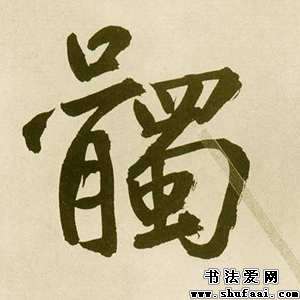 髑
书法爱网
www.shufaai.com